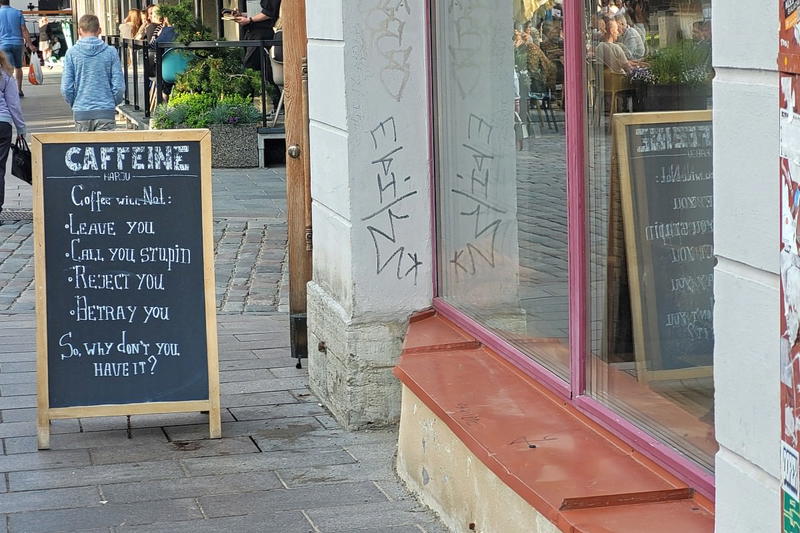 CAFFEINE
HARJU
Coffee will Not:
• LEAVE YOU
• CALL YOU STUPIN
• REJECT YOU
• BETRAY YOU
SO, WHY DON'T YOU
HAVE IT?